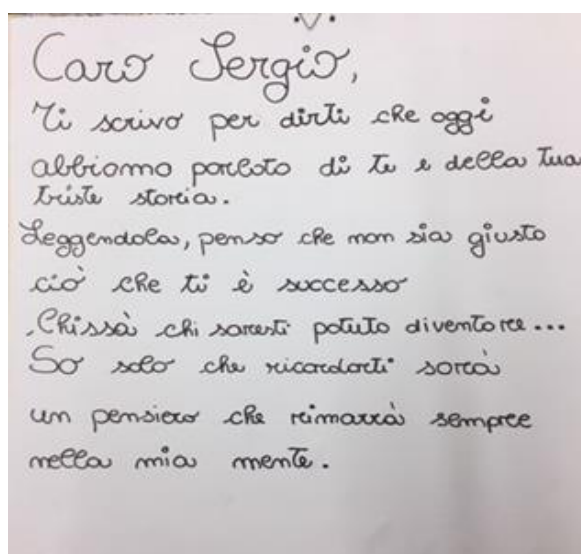 Caro Sergio,
Ti scrivo per dirti che oggi
abbiamo parlato di te e della tua
triste storia.
Leggendola, penso che non sia giusto
ciò che ti è successo
Chissà chi saresti potuto diventare...
So solo che ricordarti sarà
un pensiero che rimarrà sempre
nella mia mente.